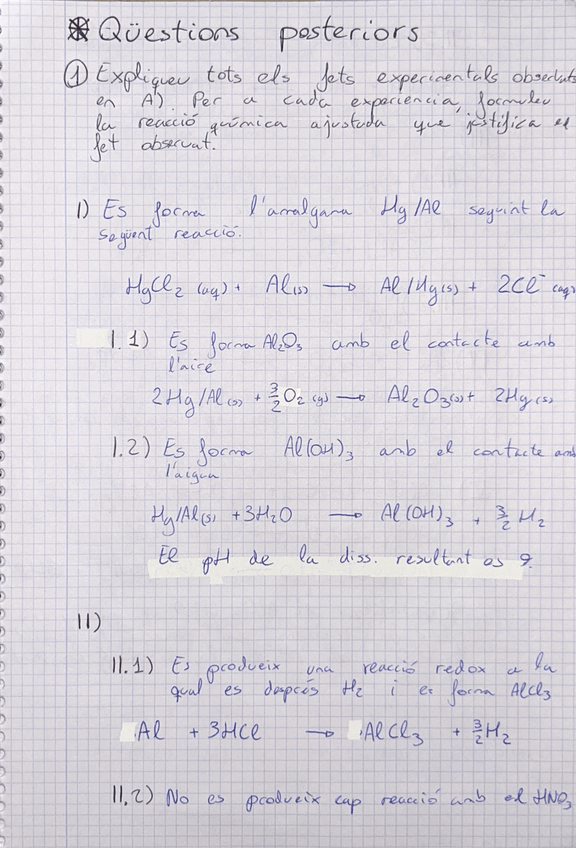 * Qüestions posteriors
① Expliqueu tots els fets experimentals observats
en A). Per a cada experiència, formuleu
la reacció química ajustada que justifica el
fet observat.
I) Es forma l'amalgama Hg/Al seguint la
següent reacció.
HgCl₂ (aq) + Al(s) → Al/Hg(s) + 2Cl⁻ (aq)
I.1) Es forma Al₂O₃ amb el contacte amb
l'aire
2Hg/Al(s) + 3/2 O₂ (g) → Al₂O₃(s) + 2Hg(s)
I.2) Es forma Al(OH)₃ amb el contacte amb
l'aigua
Hg/Al(s) + 3H₂O → Al(OH)₃ + 3/2 H₂
El pH de la diss. resultant és 9.
II)
II.1) Es produeix una reacció redox a la
qual es desprèn H₂ i es forma AlCl₃
Al + 3HCl → AlCl₃ + 3/2 H₂
II.2) No es produeix cap reacció amb el HNO₃